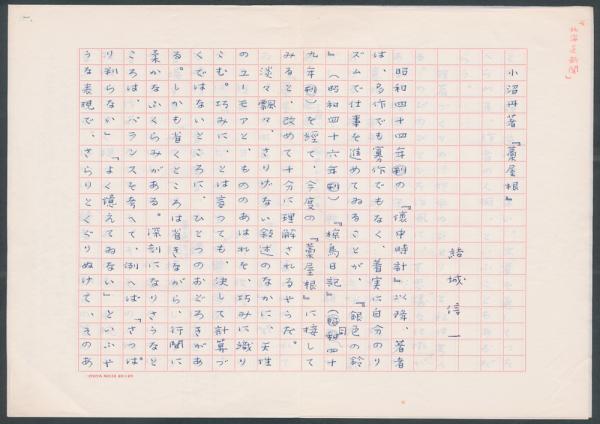 「北海道新聞」
小沼丹著『藁屋根』
結城信一
昭和四十四年刊の『懐中時計』以降、著者
は、多作でも寡作でもなく、着実に自分のリ
ズムで仕事を進めてゐることが、『銀色の鈴
』（昭和四十六年刊）『椋鳥日記』（昭和四十
九年刊）を経て、今度の『藁屋根』に接して
みると、改めて十分に理解されるやうだ。
淡々飄々、さりげない叙述のなかに、天性
のユーモアと、もののあはれを、巧みに織り
こむ。巧みに、とは言つても、決して計算づ
くではないところに、ひとつのおどろきがあ
る。しかも省くところは省きながら、行間に
柔かなふくらみがある。深刻になりさうなと
ころは、バランスを考へて、例へば「さつぱ
り判らない」「よく憶えてゐない」といふや
うな表現で、さらりとくぐりぬけて、そのあ